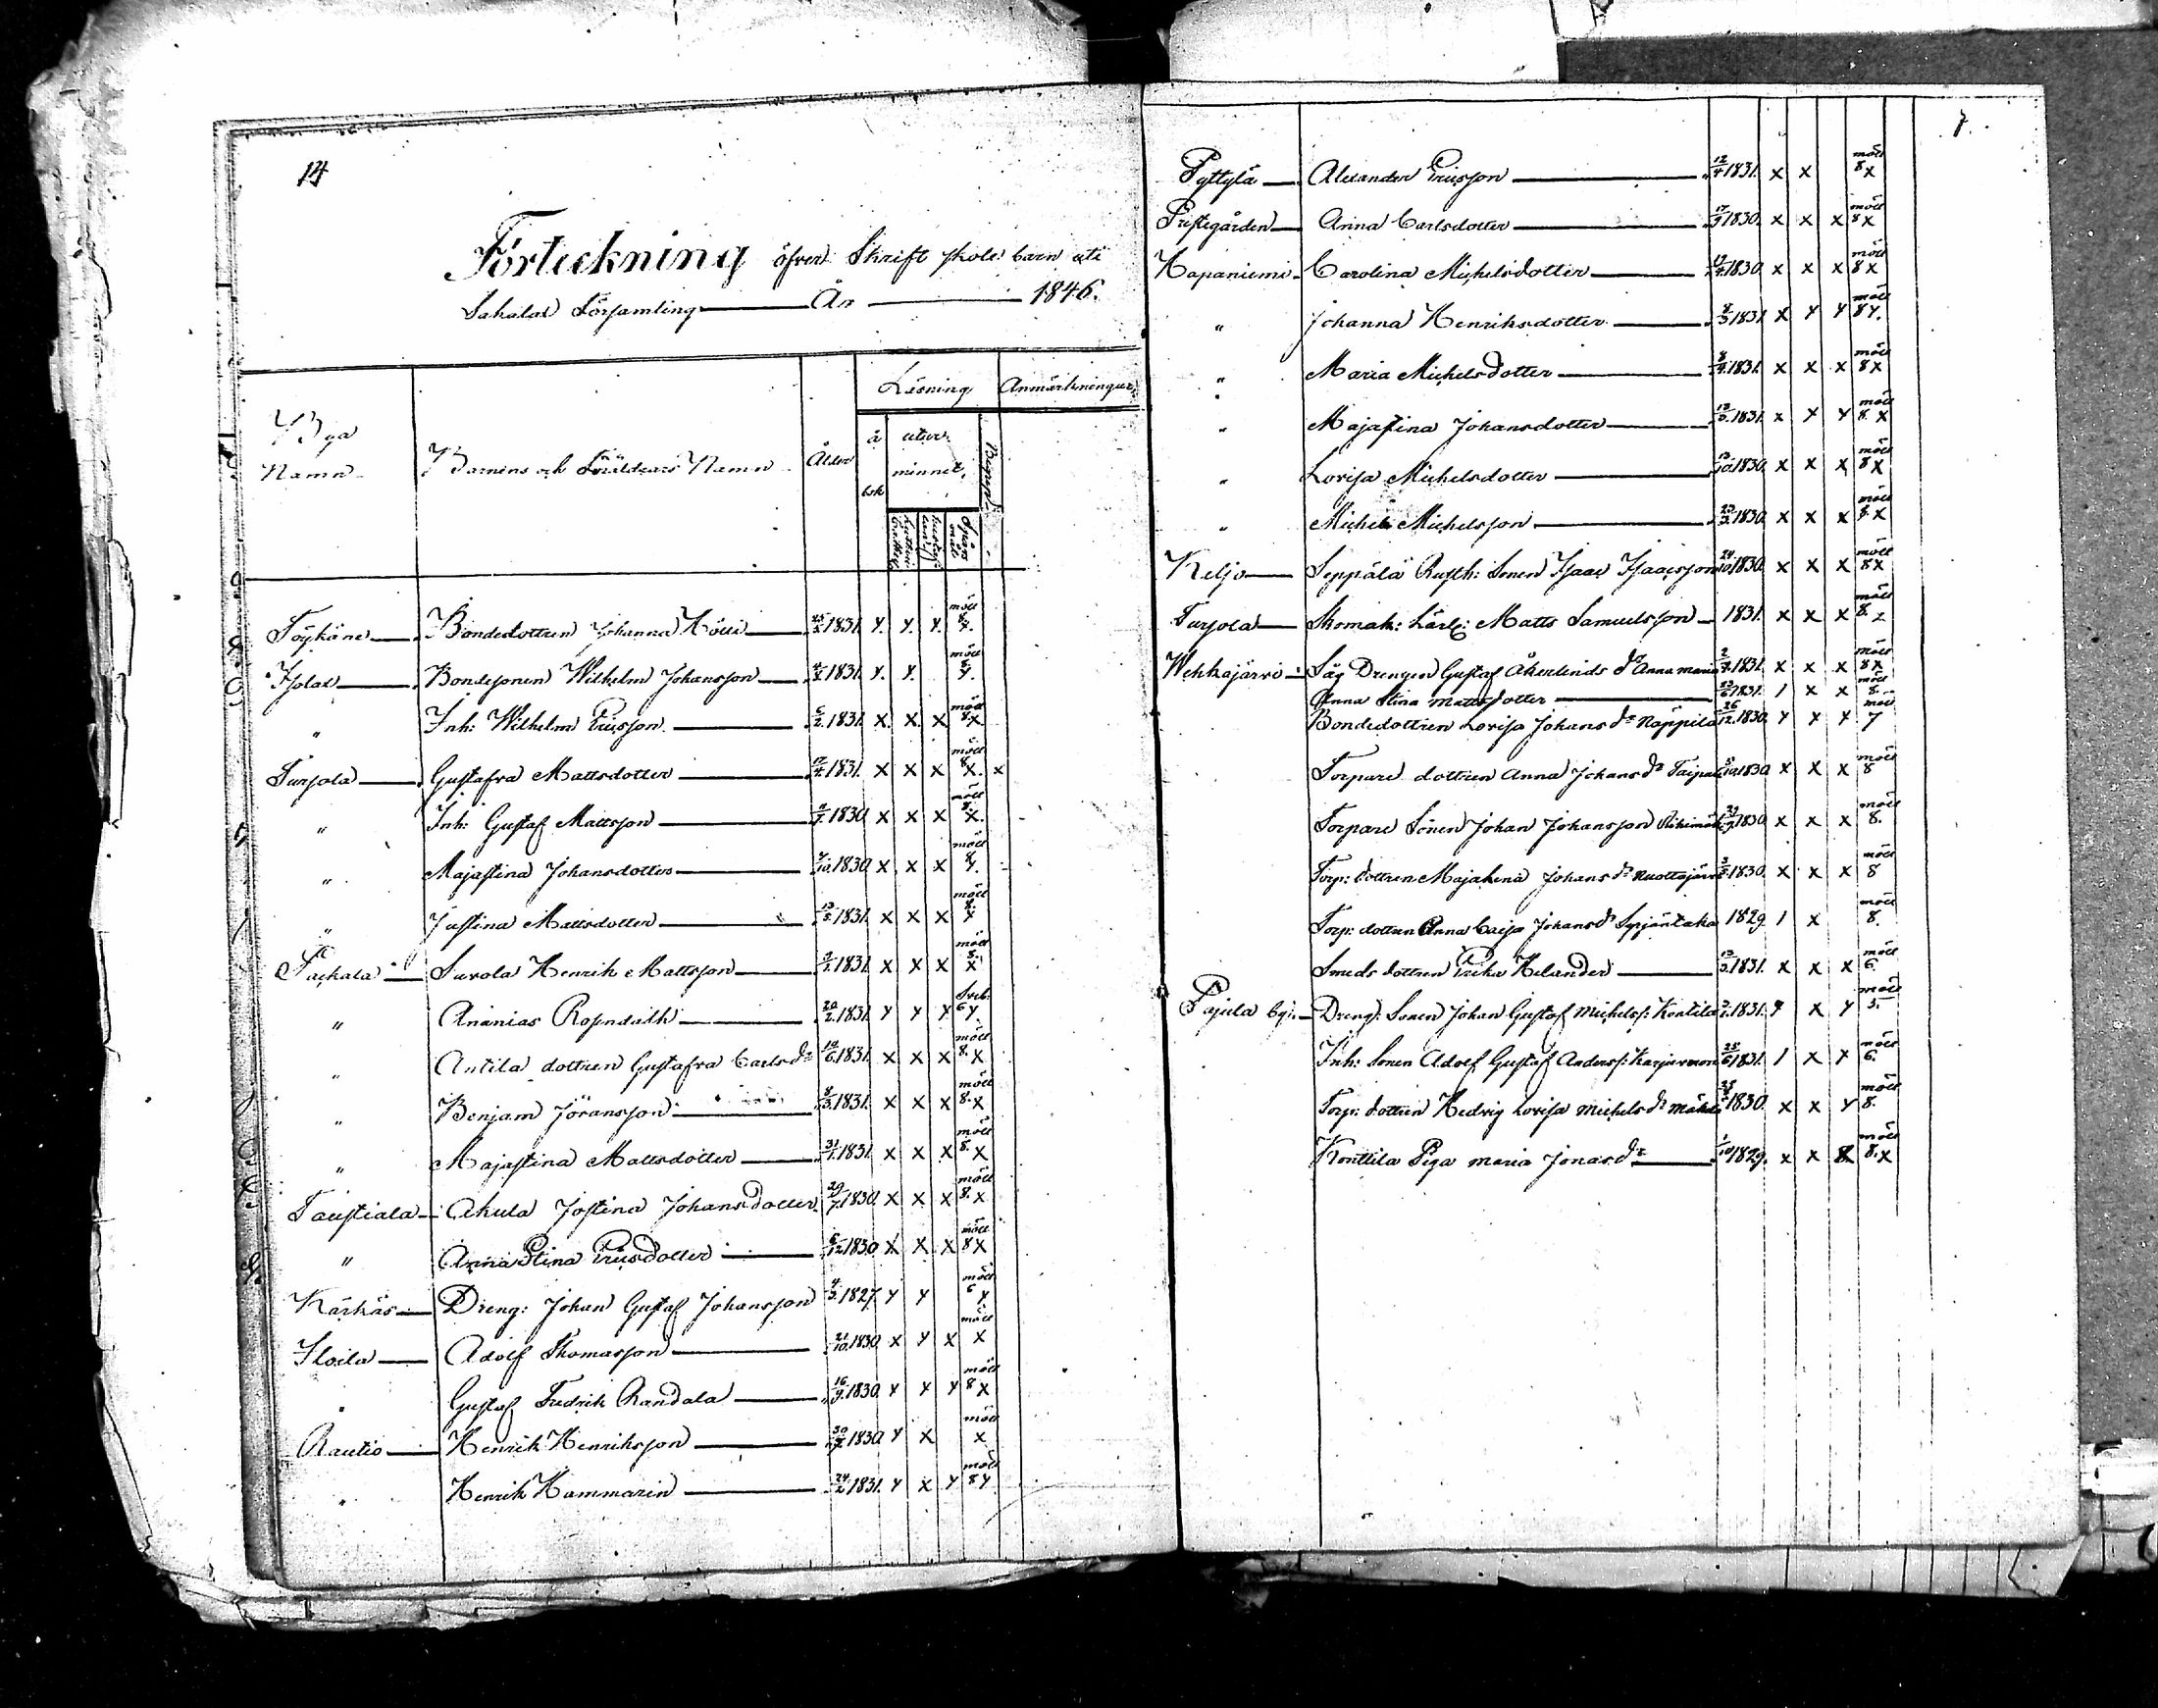 14
Förteckning öfver Skrift skole barn uti
Sahalax Församling År 1846.
Bya Namn
Barnens och Föräldrars Namn
Ålder
Läsning
Anmärkningar
å bok
utur minnet
Begrepp
Töykäne Bondedottren Johanna Höhi 25/2 1831 x. x. x. mött 8 x.
Isolax Bondesonen Wilhelm Johansson 1831 x. x. mött 8. x.
" Inh: Wilhelm Ericsson 6/2. 1831. x. x. x mött 8. x
Turjola Gustafva Mattsdotter 17/4. 1831. x x x mött 8. x. x
" Inh: Gustaf Mattsson 1830. x x x mött 8. x.
" Majastina Johansdotter 7/10. 1830. x x x mött 8. x.
" Justina Mattsdotter 13/5. 1831. x x x mött 8. x
Pakkala Surola Henrik Mattsson 1831. x x x mött 8. x
" Ananias Rosendalh 20/2. 1831. x x x 6 x.
" Antila dottren Gustafva Carls dr 19/6. 1831. x x x mött 8. x
" Benjam Jöransson 8/3. 1831. x x x mött 8. x
" Majastina Mattsdotter 31/1. 1831. x x x mött 8. x
Taustiala Ahula Jostina Johansdotter 29/7. 1830. x x x mött 8. x
" Anna Stina Ericsdotter 6/12 1830 x x x mött 8 x
Kärkäs Dreng: Johan Gustaf Johansson 4/3. 1827. x x mött 6 x
Iloila Adolf Thomasson 21/10. 1830. x x x mött x
" Gustaf Fredrik Randala 16/9. 1830. x x x mött 8 x
Rautio Henrik Henriksson 30/7. 1830. x x mött x
" Henrik Hammarin 24/2. 1831. x x x mött 8 x
7.
Pyttylä Alexander Ericsson 12/4. 1831. x x mött 8 x
Prestegården Anna Carlsdotter 17/9. 1830. x x x mött 8 x
Hapaniemi Carolina Michelsdotter 1830. x x x mött 8 x
" Johanna Henriksdotter 8/3. 1831. x x x mött 8 x.
" Maria Michelsdotter 1831. x x x mött 8 x
" Majastina Johansdotter 13/5. 1831. x x x mött 8. x
" Lovisa Michelsdotter 13/10. 1830. x x x mött 8 x
" Michel Michelsson 23/3. 1830. x x x mött 8. x
Keljo Seppälä Rusth: Sonen Isaac Isaacsson 24/10. 1830. x x x mött 8 x
Turjola Skomak: Lärl: Matts Samuelsson 1831. x x x mött 8. x
Wehkajärvi Såg Drengen Gustaf Åkerlinds dr Anna Maria 1831. x x x mött 8 x
Anna Stina Mattsdotter 23/6 1831. 1 x x mött 8.
Bondedottren Lovisa Johans dr Näppilä 26/12. 1830. x x x mött 7
Torpare dottren Anna Johans dr Taipale 8/10 1830 x x x mött 8
Torpare Sonen Johan Johansson 29/7. 1830 x x x mött 8.
Torp: dottren Majalena Johans dr Nuottajärvi 3/5. 1830. x x x mött 8
Torp: dottren Anna Caisa Johans dr Syrjäntaka 1829 1 x mött 8.
Smeds dottren Erika Helander 13/3. 1831. x x x mött 6.
Pajula by: Dreng: Sonen Johan Gustaf Michelss: Konttila 1831. x x x mött 5.
Inh: Sonen Adolf Gustaf Anderss: 25/6 1831. 1 x x mött 6.
Torp: dottren Hedvig Lovisa Michels dr Mäkelä 1830. x x x mött 8.
Konttila Piga Maria Jonas dr 1/10 1829. x x x mött 8. x